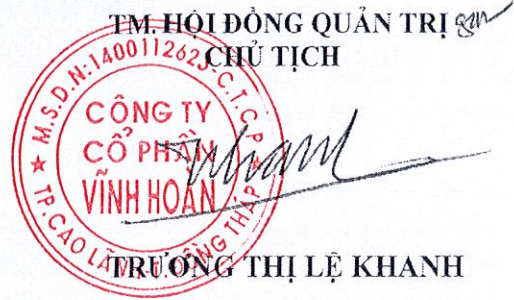 TM. HỘI ĐỒNG QUẢN TRỊ
CHỦ TỊCH
M.S.D.N:1400112623-C.T.C.P
CÔNG TY
CỔ PHẦN
VĨNH HOÀN
TP.CAO LÃNH-T.ĐỒNG THÁP
TRƯƠNG THỊ LỆ KHANH